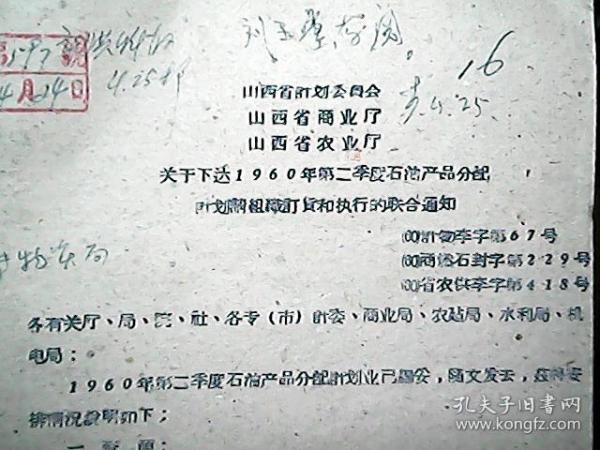 4月24日
4.25
16
山西省計划委員会
山西省商业厅
山西省农业厅
关于下达1960年第二季度石油产品分配
計划的組織訂貨和执行的联合通知
(60)計物李字第67号
(60)商透石封字第229号
(60)省农供李字第418号
物资局
各有关厅、局、院、社、各专(市)計委、商业局、农站局、水利局、机
电局:
1960年第二季度石油产品分配計划业已編妥,随文发去,
排情况說明如下;
一
孔夫子旧书网
www.kongfz.com